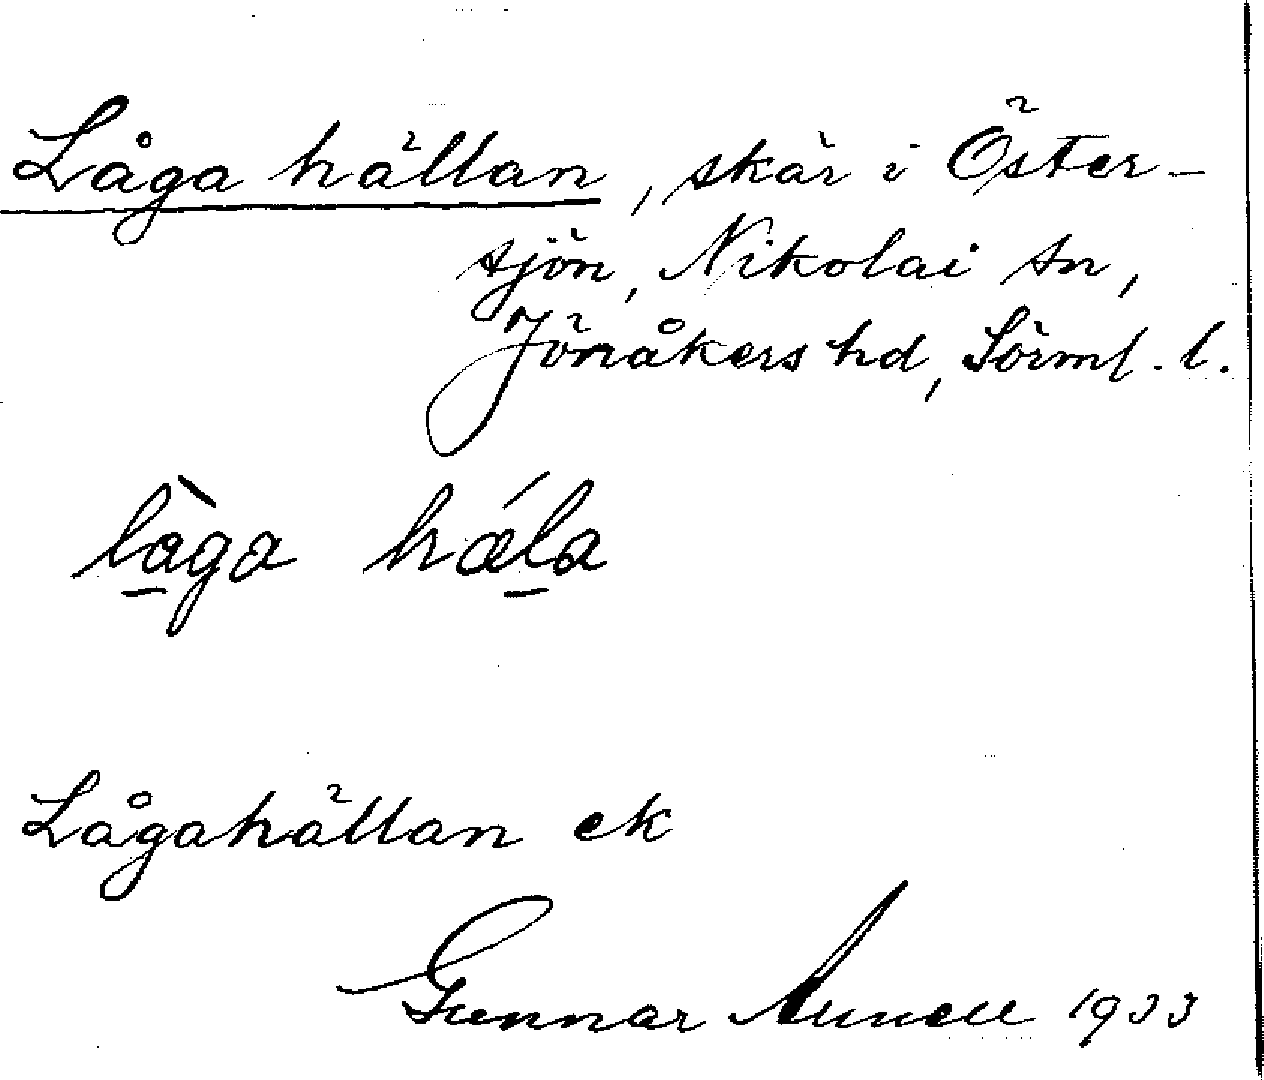 Låga hällan, skär i Öster-
sjön, Nikolai sn,
Jönåkers hd, Sörml. l.
låga hæla
Lågahällan ek
Gunnar 1933